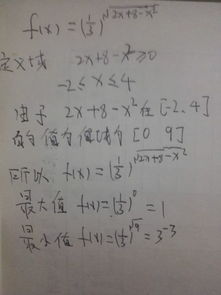 f(x)=(1/3)^√(2x+8-x²)
定义域 2x+8-x²≥0
-2≤x≤4
由于 2x+8-x²在[-2,4]
的值为值域为[0 9]
所以 f(x)=(1/3)^√(2x+8-x²)
最大值 f(x)=(1/3)^0=1
最小值 f(x)=(1/3)^√9=3^-3